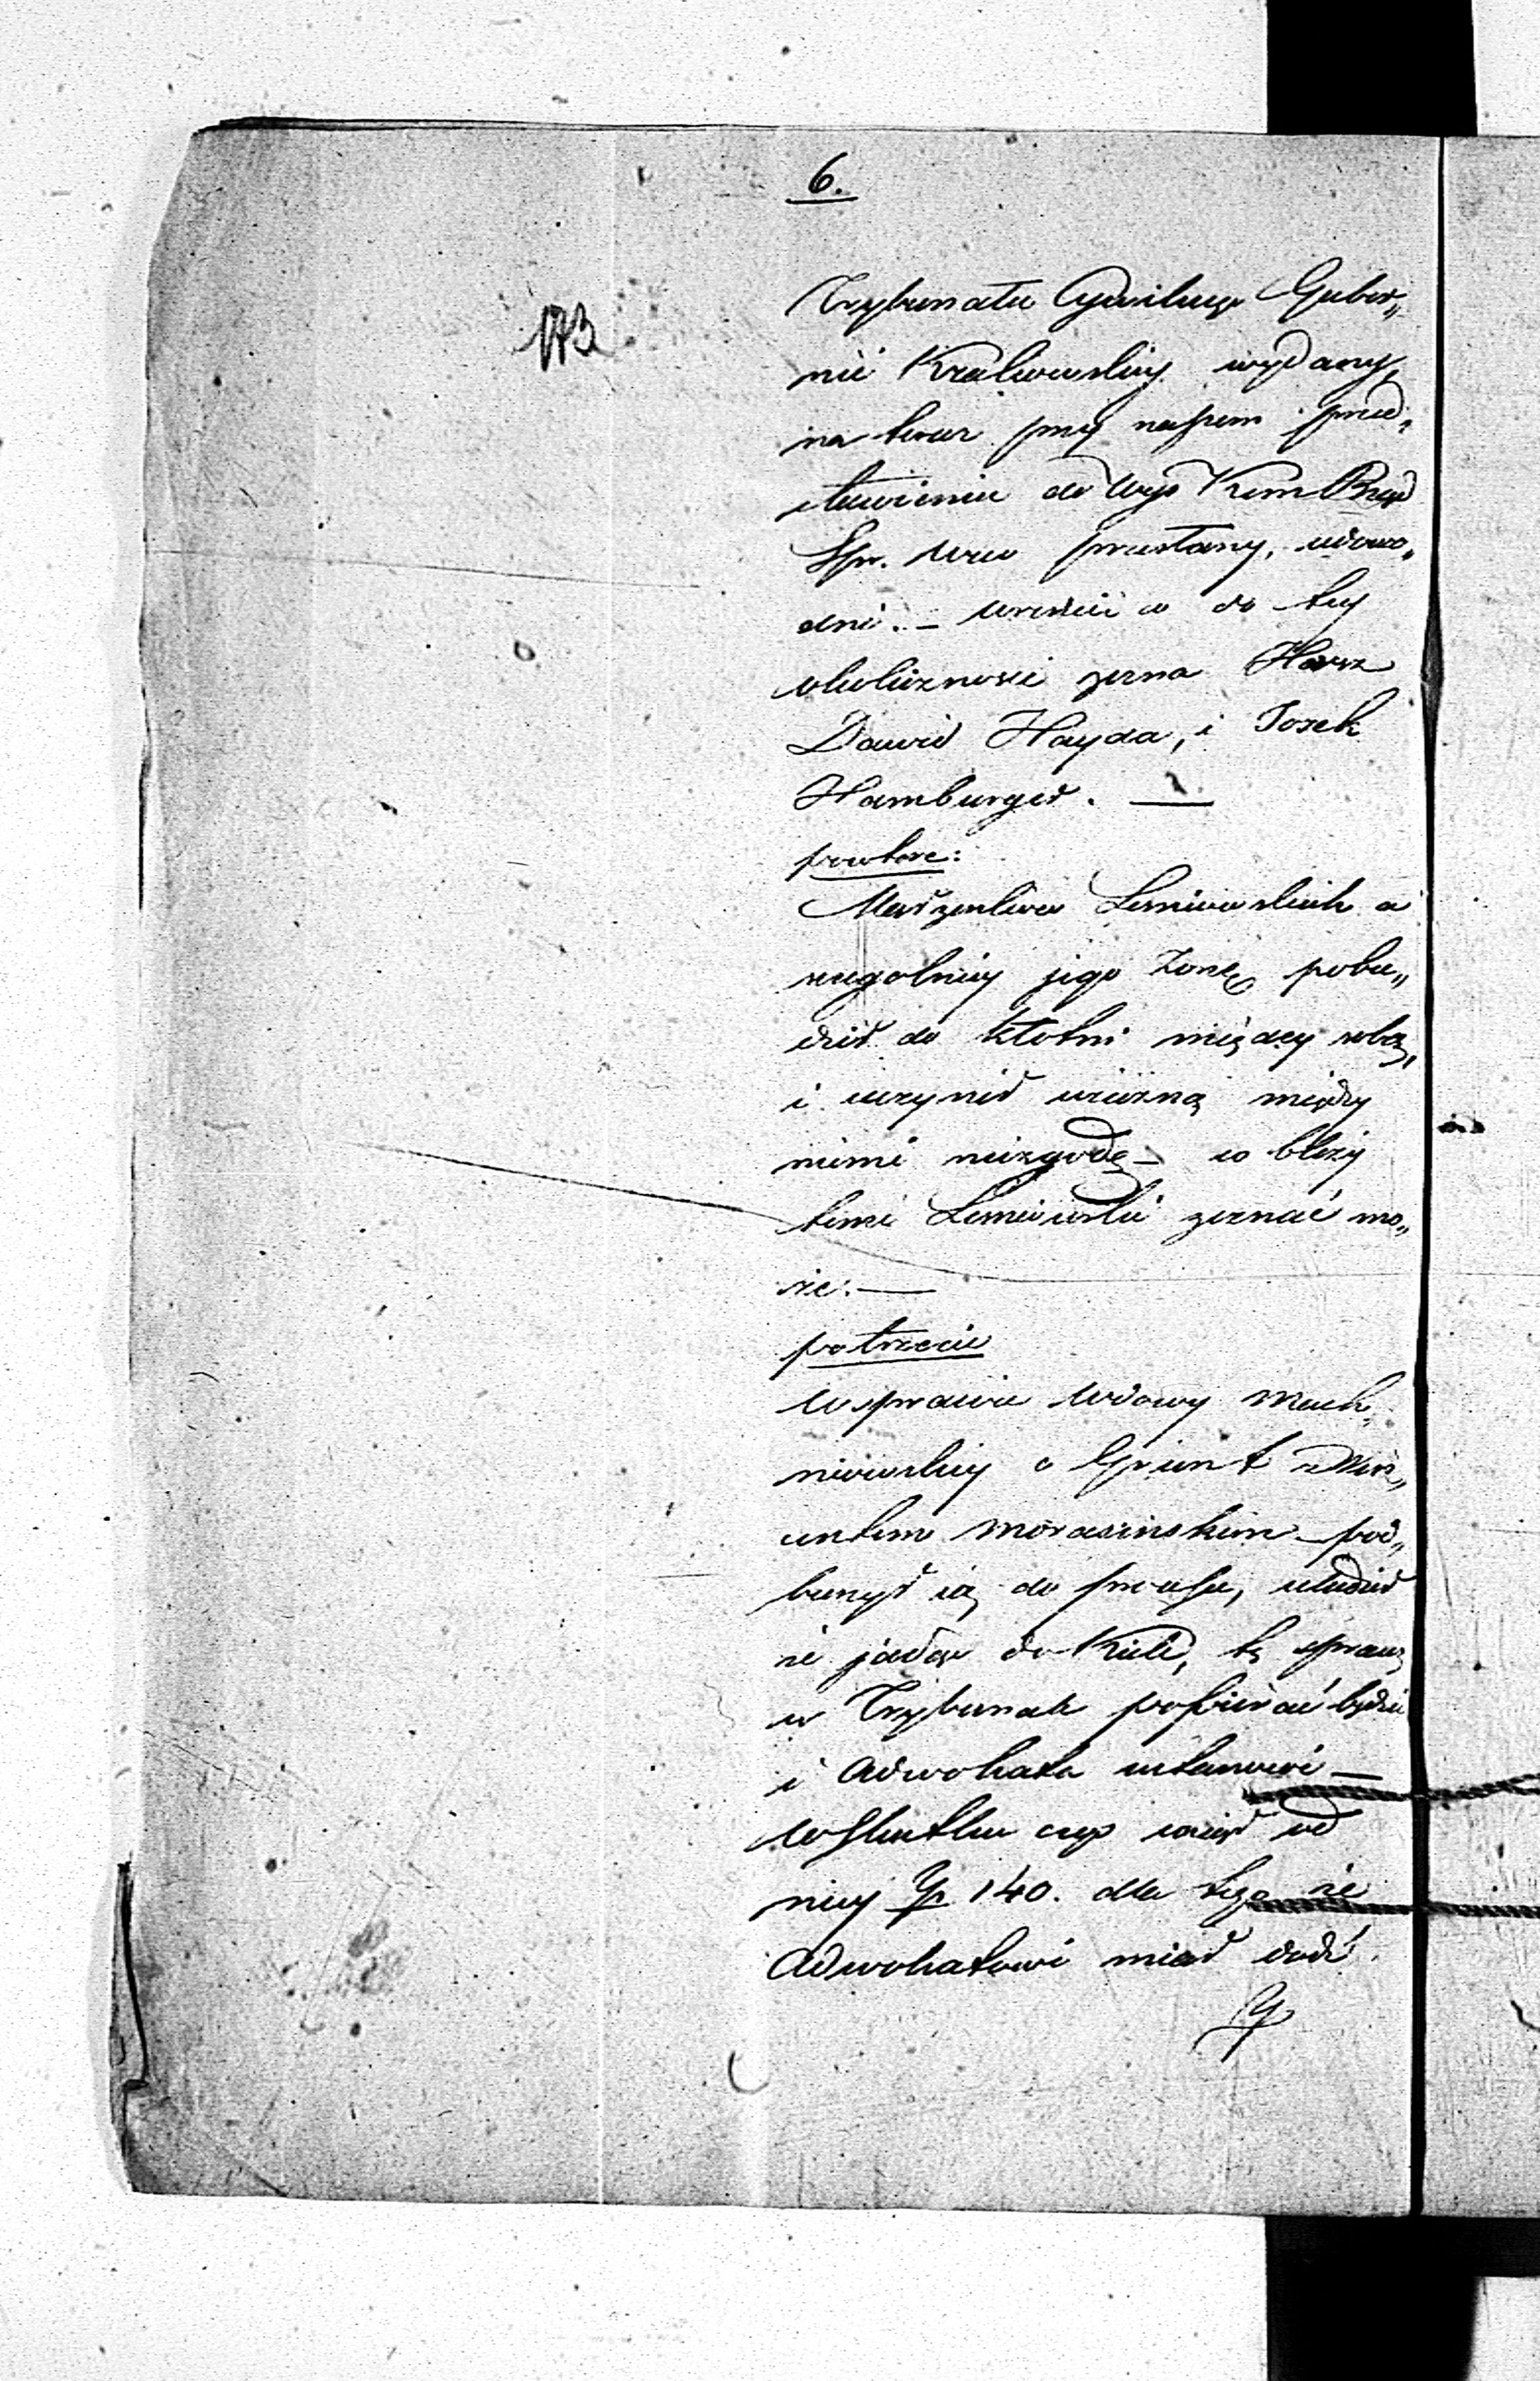 6.
173
Trybunału Cywilnego Guber„
nii Krakowskiey wydany,
na teraz przy naszem przed„
stawieniu do Wys Kom Rząd
Spr. Wew przesłany, udowo„
dni. – wreście co do tey
okoliczności zezna Hersz
Dawid Hayda, i Josek
Hamburger. —
powtore:
Małżonków Lesniewskich a
szczególniey jego Żonę pobu„
dził do kłotni między sobą,
i uczynił wieczną między
niemi niezgodę – co bliżey
tenże Lesniewski zeznać mo„
że. —
potrzecie
w sprawie Wdowy Mach„
niewskiey o Grunt z Win„
centem Morasińskim pod„
burzył ią do processu, ułudził
że jadąc do Kielc, tę sprawę
w Trybunale popierać będzie
i Adwokata ustanowi —
w skutku czego wziął od
niey Zp 140. dla tego że
Adwokatowi miał dać